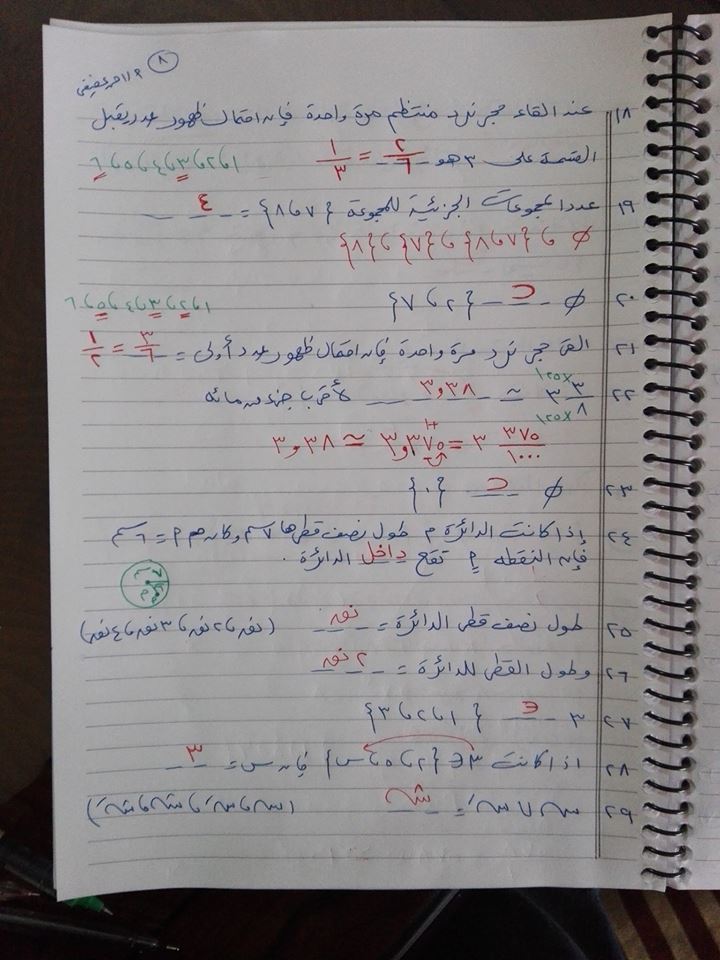 ٨
١٨ عند القاء حجر نرد منتظم مرة واحدة فإن احتمال ظهور عدد يقبل
القسمة على ٣ هو ٢/٦ = ١/٣ ١،٢،٣،٤،٥،٦
١٩ عدد المجموعات الجزئية للمجموعة {٧،٨} = ٤
∅ ، {٧،٨} ، {٧} ، {٨}
٢٠ ∅ ⊂ {٢،٧} ١،٢،٣،٤،٥،٦
٢١ القى حجر نرد مرة واحدة فإن احتمال ظهور عدد أولى = ٣/٦ = ١/٢
٢٢ ٣ ٣×١٢٥/٨×١٢٥ ≃ ٣,٣٨ لأقرب جزء من مائه
٣ ٣٧٥/١٠٠٠ = ٣,٣٧٥ ≃ ٣,٣٨
+١
٢٣ ∅ ⊂ {٠}
٢٤ إذا كانت الدائرة م طول نصف قطرها ٧سم وكان م م = ٦سم
فإن النقطه م تقع داخل الدائرة.
٢٥ طول نصف قطر الدائرة = نق (نق، ٢نق، ٣نق، ٤نق)
٢٦ وطول القطر للدائرة = ٢ نق
٢٧ ٣ ∈ {١،٢،٣}
٢٨ اذا كانت ٣ ∈ {٢،٥،س} فإن س = ٣
٢٩ سـ ∪ سـَ = شـ (سـ، سـَ، شـ، شـَ)